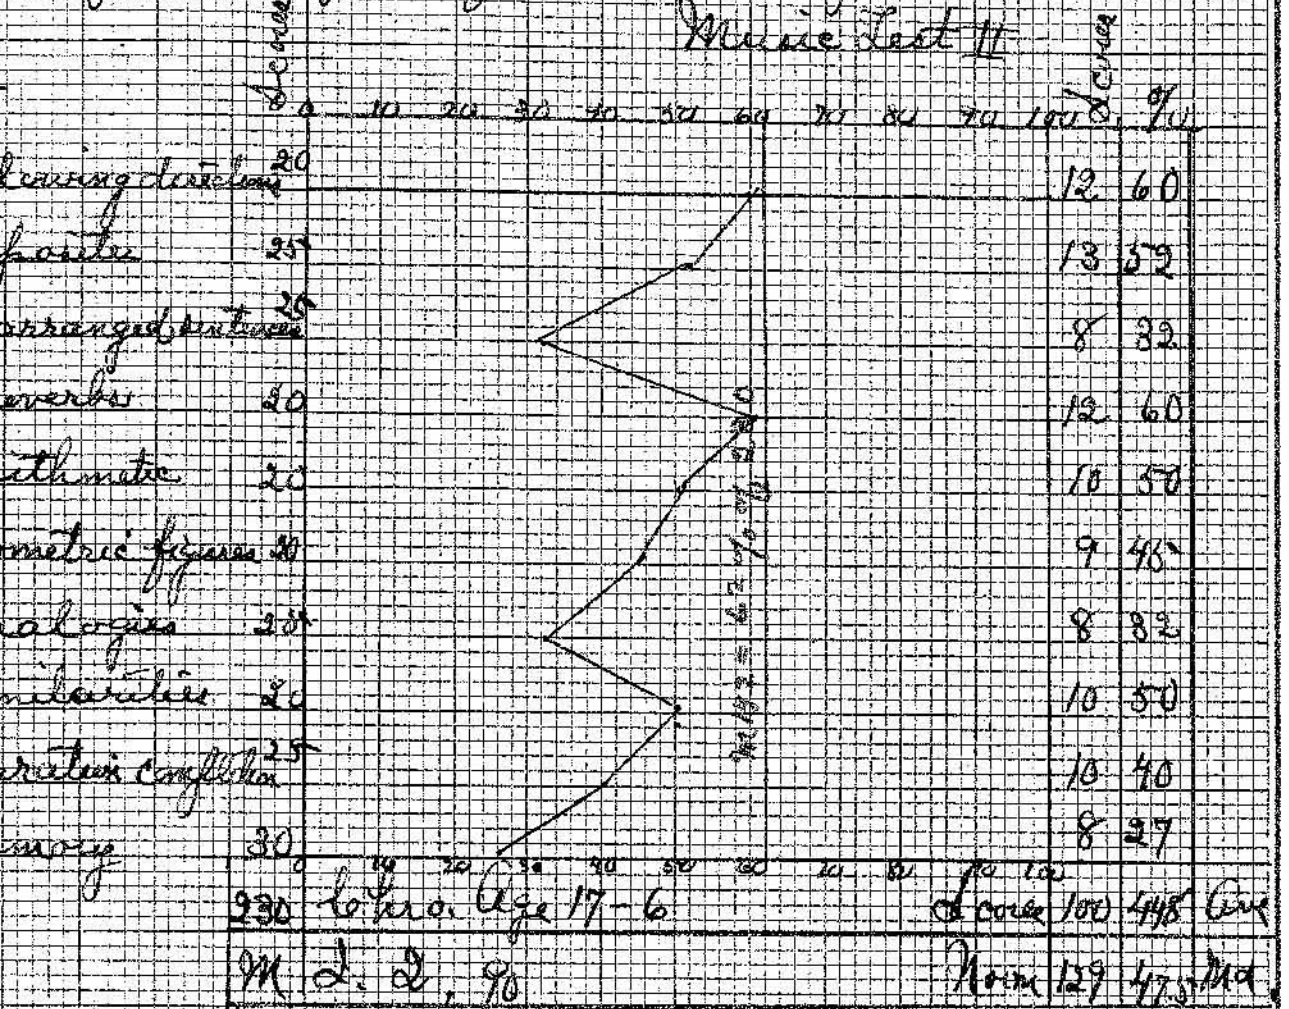 Music Test II
Scores 0 10 20 30 40 50 60 70 80 90 100 Scores %
lowing directions 20 12 60
posites 25 13 52
arranged sentences 25 8 32
overbs 20 12 60
ithmetic 20 10 50
ometric figures 20 9 45
nalogies 25 8 32
milarities 20 10 50
25 10 40
mory 30 8 27
0 10 20 30 40 50 60 70 80 90 100
230 Chro. Age 17-6 Score 100 448 Ave
M Norm 129 475 Md.